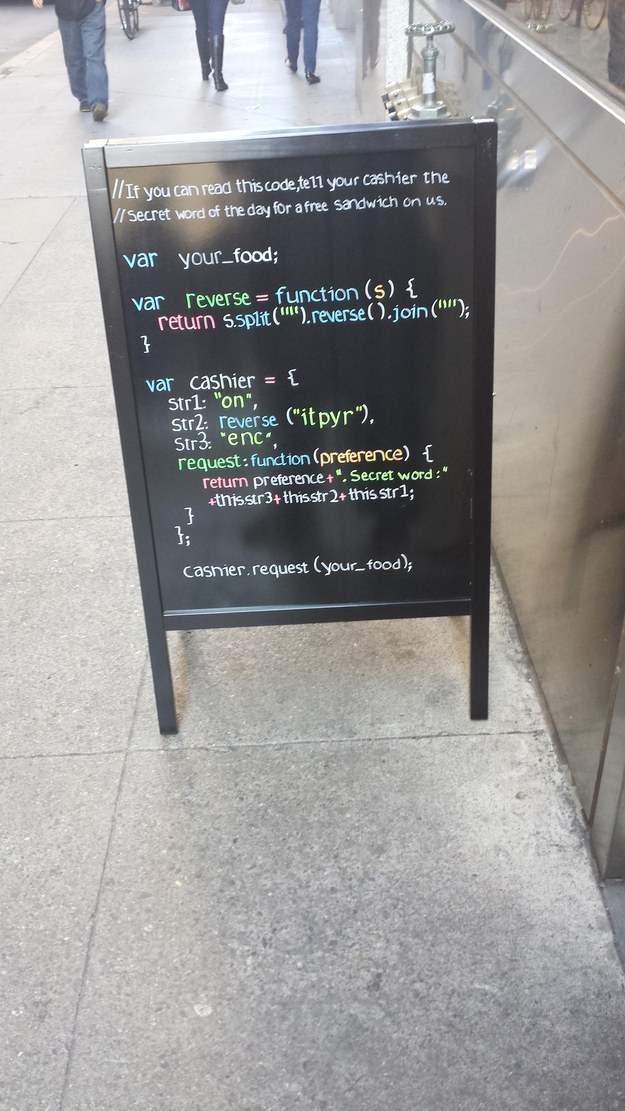 //If you can read this code,tell your cashier the
//Secret word of the day for a free sandwich on us.
var your_food;
var reverse = function (s) {
return s.split("").reverse().join("");
}
var cashier = {
str1: "on",
str2: reverse ("itpyr"),
str3: "enc",
request:function(preference) {
return preference+". Secret word:"
+thisstr3+thisstr2+thisstr1;
}
};
cashier.request (your_food);